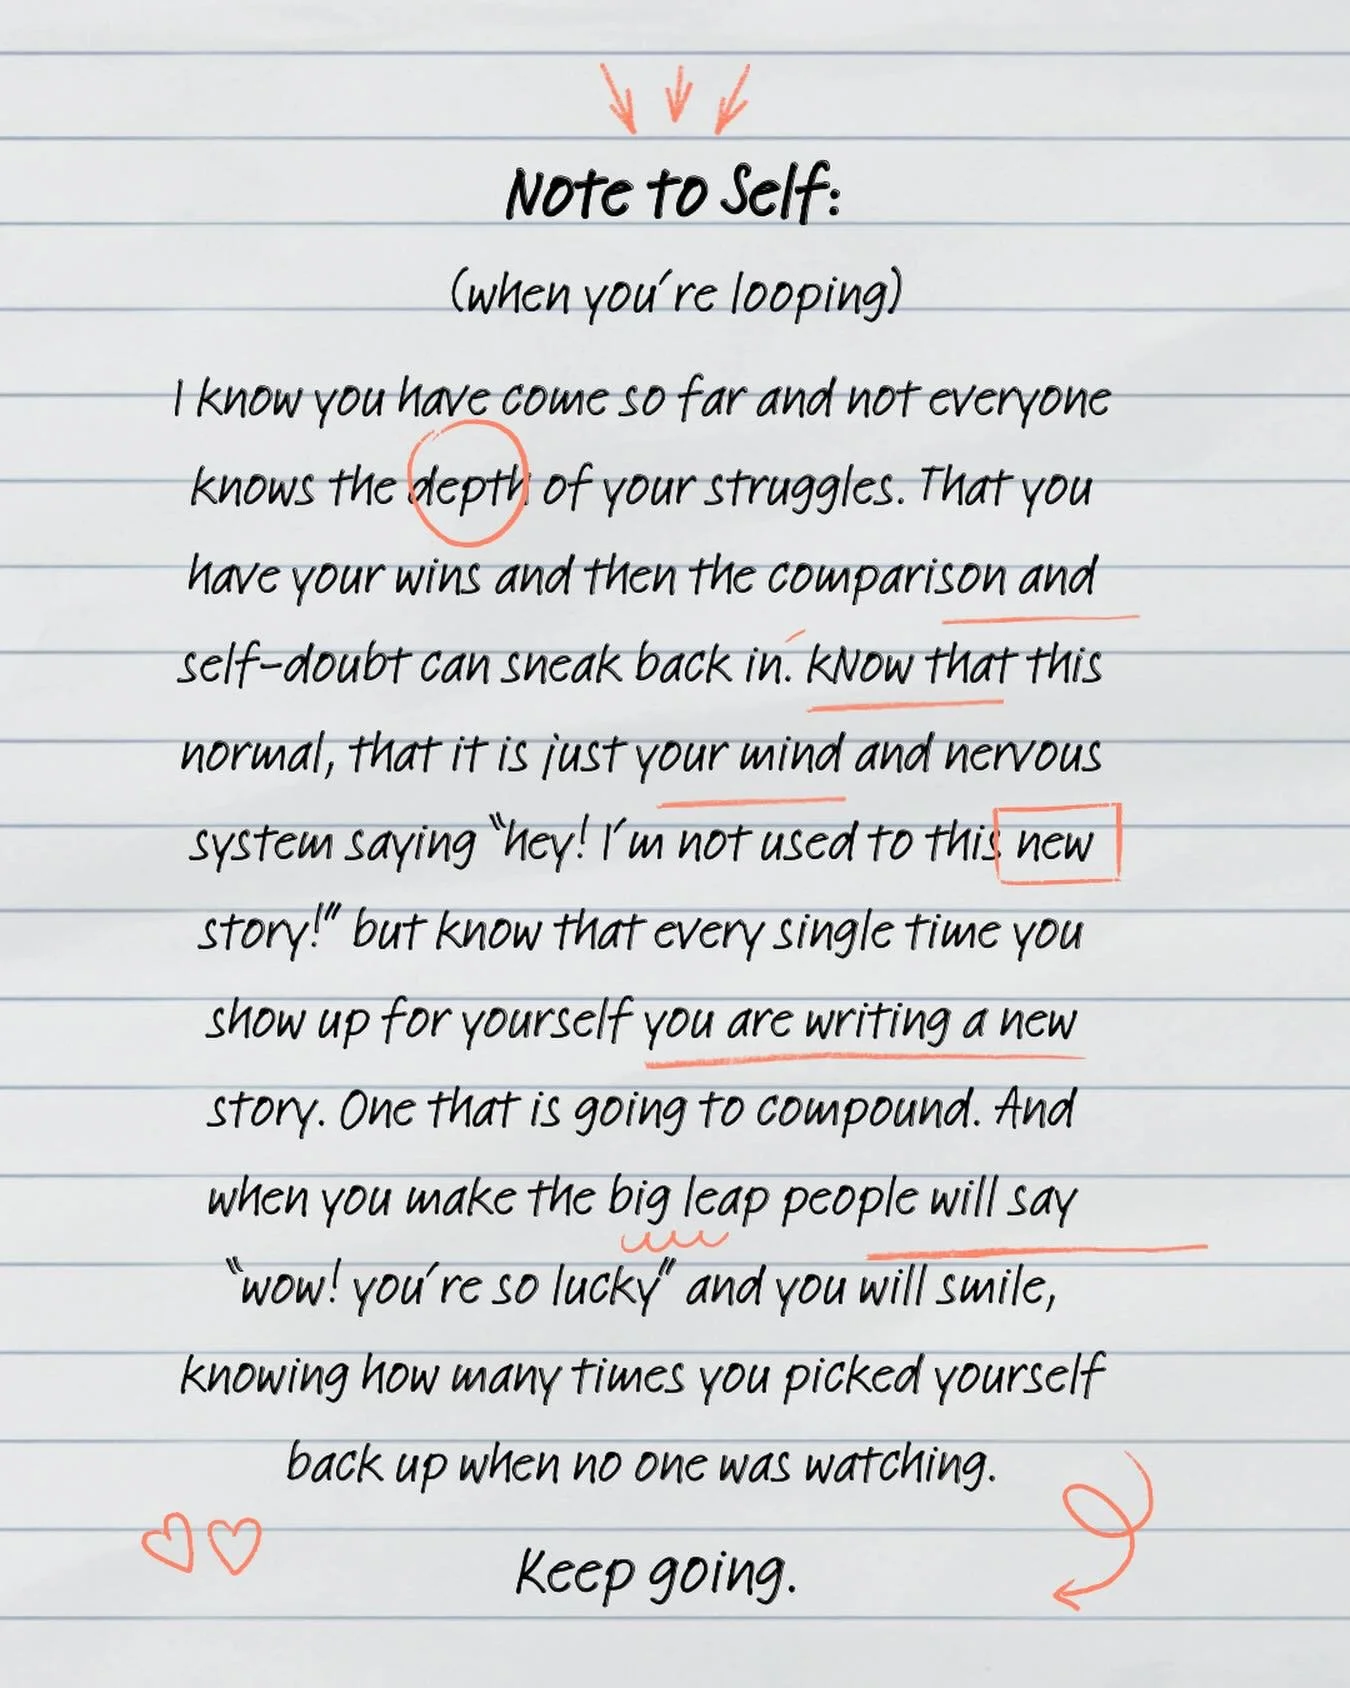 Note to Self:
(when you're looping)
I know you have come so far and not everyone
knows the depth of your struggles. That you
have your wins and then the comparison and
self-doubt can sneak back in. kNow that this
normal, that it is just your mind and nervous
system saying "hey! I'm not used to this new
story!" but know that every single time you
show up for yourself you are writing a new
story. One that is going to compound. And
when you make the big leap people will say
"wow! you're so lucky" and you will smile,
knowing how many times you picked yourself
back up when no one was watching.
Keep going.